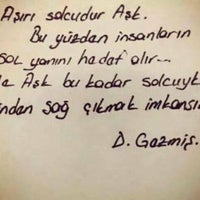 Aşırı solcudur Aşk.
Bu yüzden insanların
sol yanını hedef alır...
Aşk bu kadar solcuyk
sağ çıkmak imkansı
D. Gezmiş.